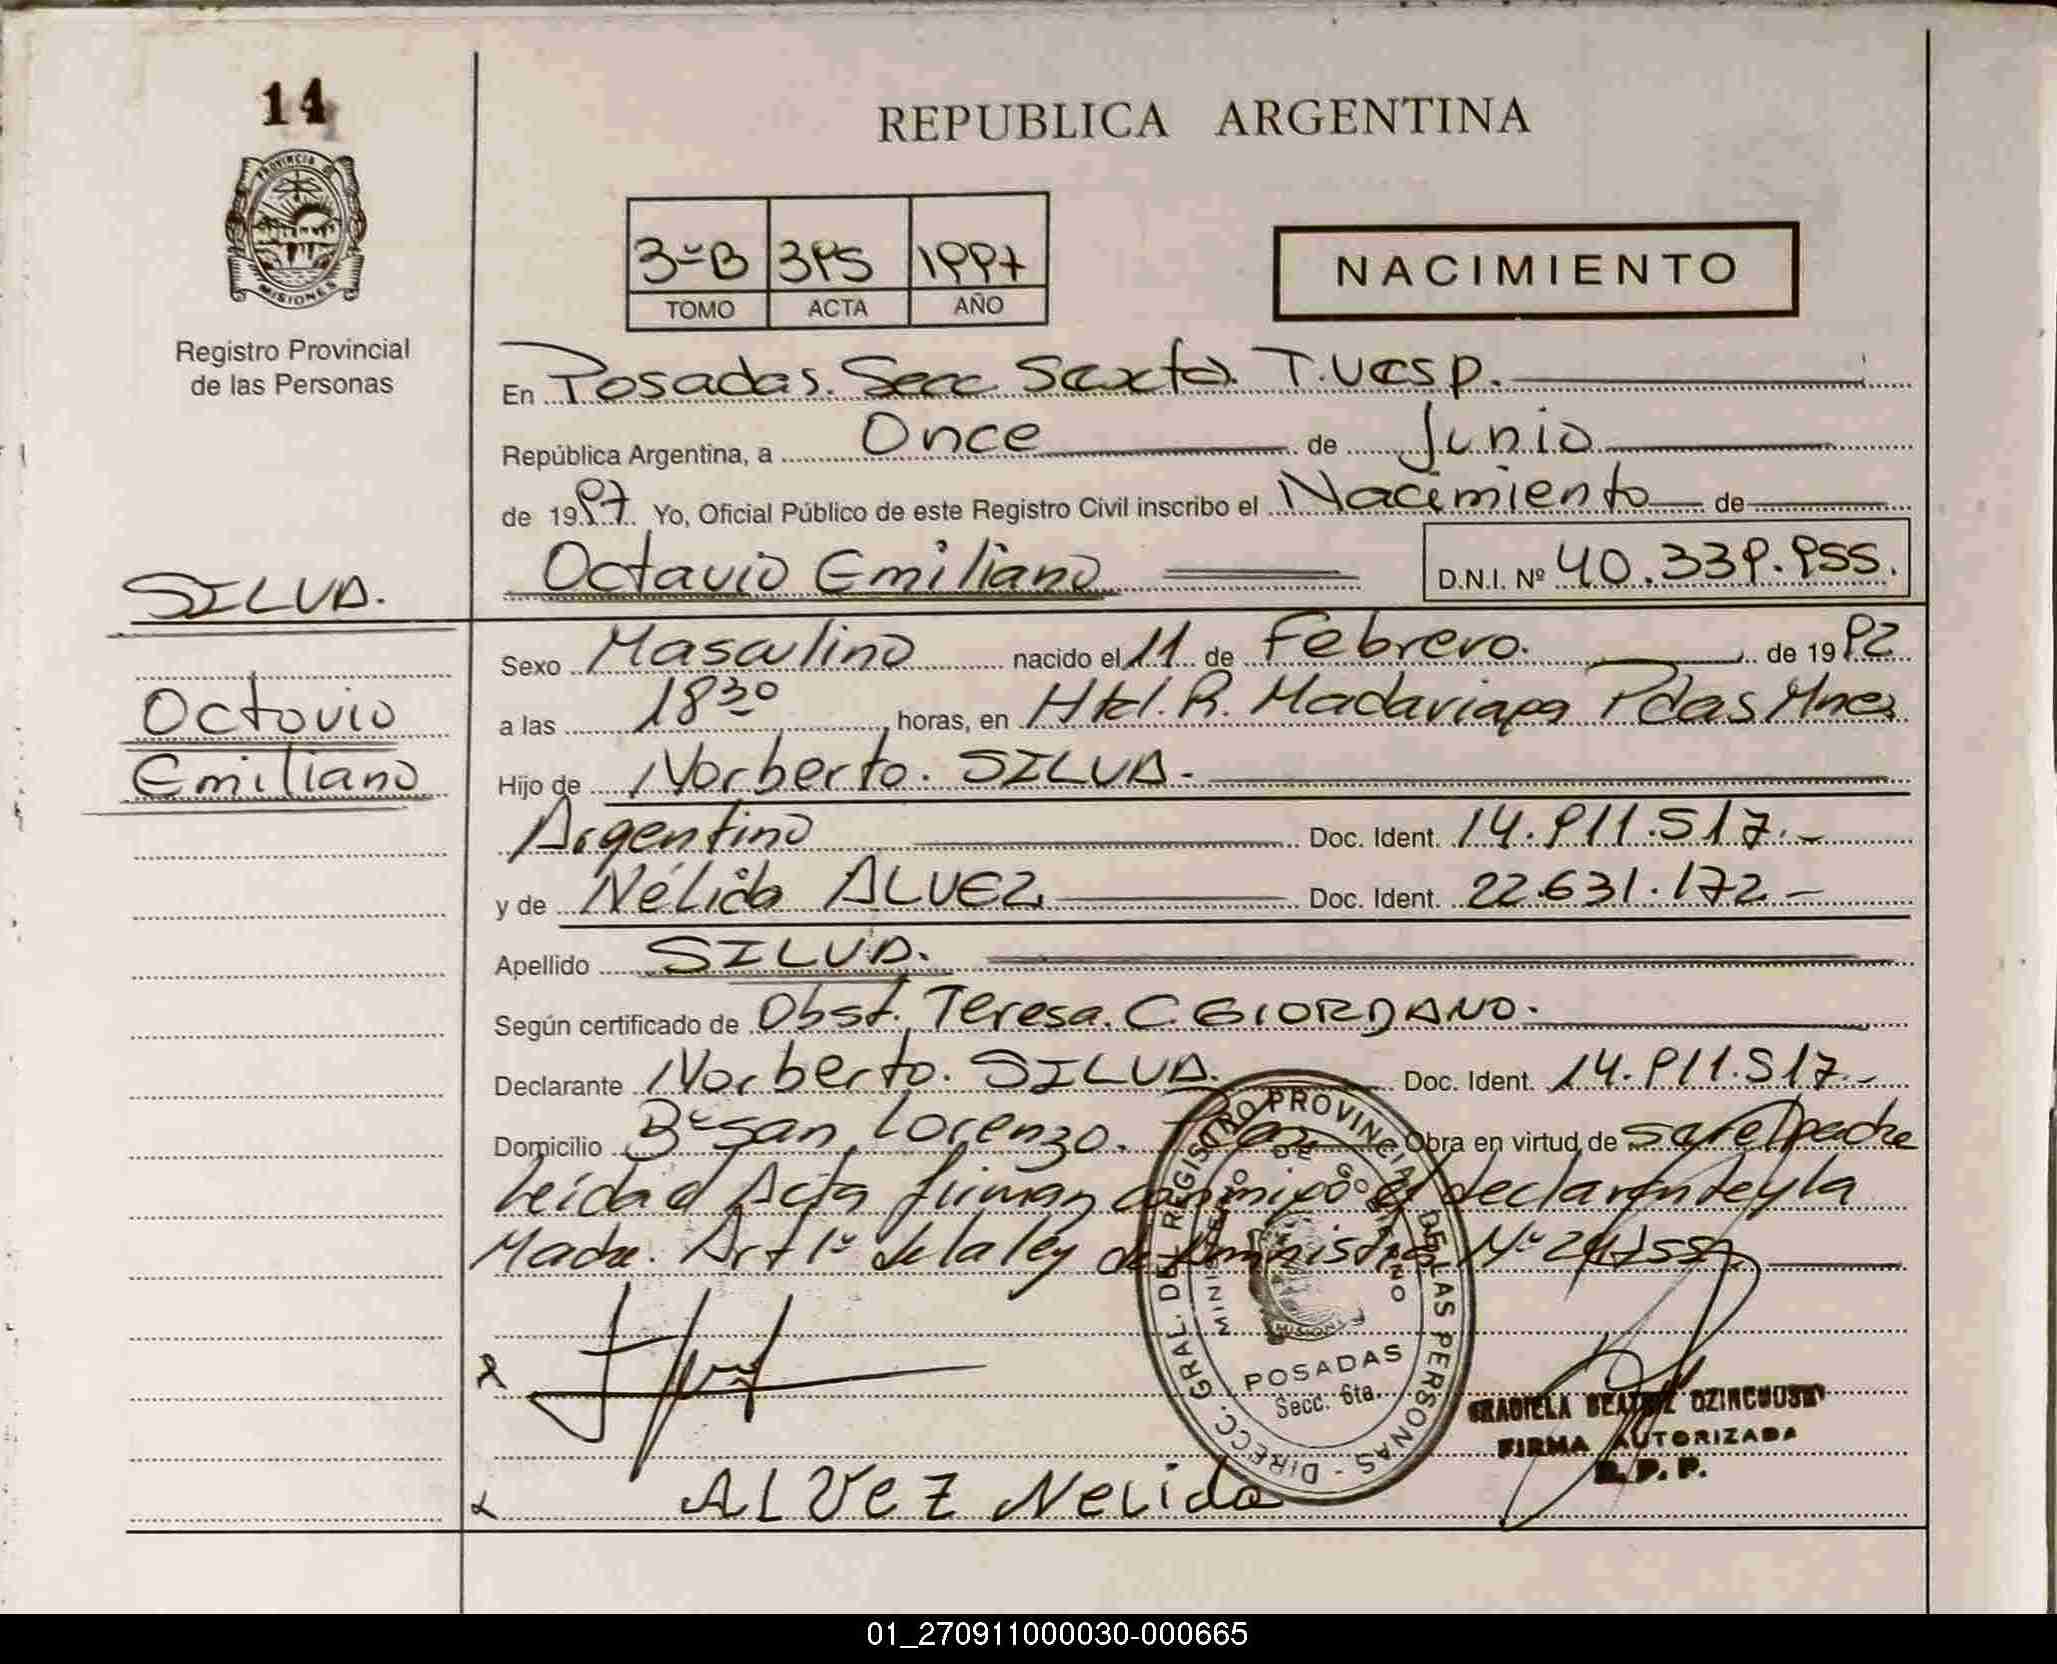 14
PROVINCIA DE
MISIONES
Registro Provincial
de las Personas
REPUBLICA ARGENTINA
3º B 395 1997
TOMO ACTA AÑO
NACIMIENTO
En Posadas. Secc. Sexta.
República Argentina, a Once de Junio
de 1997. Yo, Oficial Público de este Registro Civil inscribo el Nacimiento de
Octavio Emiliano D.N.I. Nº 40.339.955.
SILVA.
Octavio
Emiliano
Sexo Masculino nacido el 11 de Febrero. de 1992
a las 18 30 horas, en Htal. R. Madariaga Pdas Mnes
Hijo de Norberto. SILVA.
Argentino Doc. Ident. 14.911.517.-
y de Nélida ALVEZ Doc. Ident. 22.631.172-
Apellido SILVA.
Según certificado de Obst. Teresa. C. GIORDANO.
Declarante Norberto. SILVA. Doc. Ident. 14.911.517.-
Domicilio Bº San Lorenzo. Pdas Obra en virtud de ser el padre
Leída el Acta firman conmigo el declarante y la
Madre. Art 1º de la ley de Nº
DIRECC. GRAL. DEL REGISTRO PROVINCIAL DE LAS PERSONAS -
MINISTERIO DE GOBIERNO
MISIONES
POSADAS
Secc. 6ta.
GRACIELA BEATRIZ
FIRMA AUTORIZADA
R.P.P.
ALVEZ Nelida
01_270911000030-000665